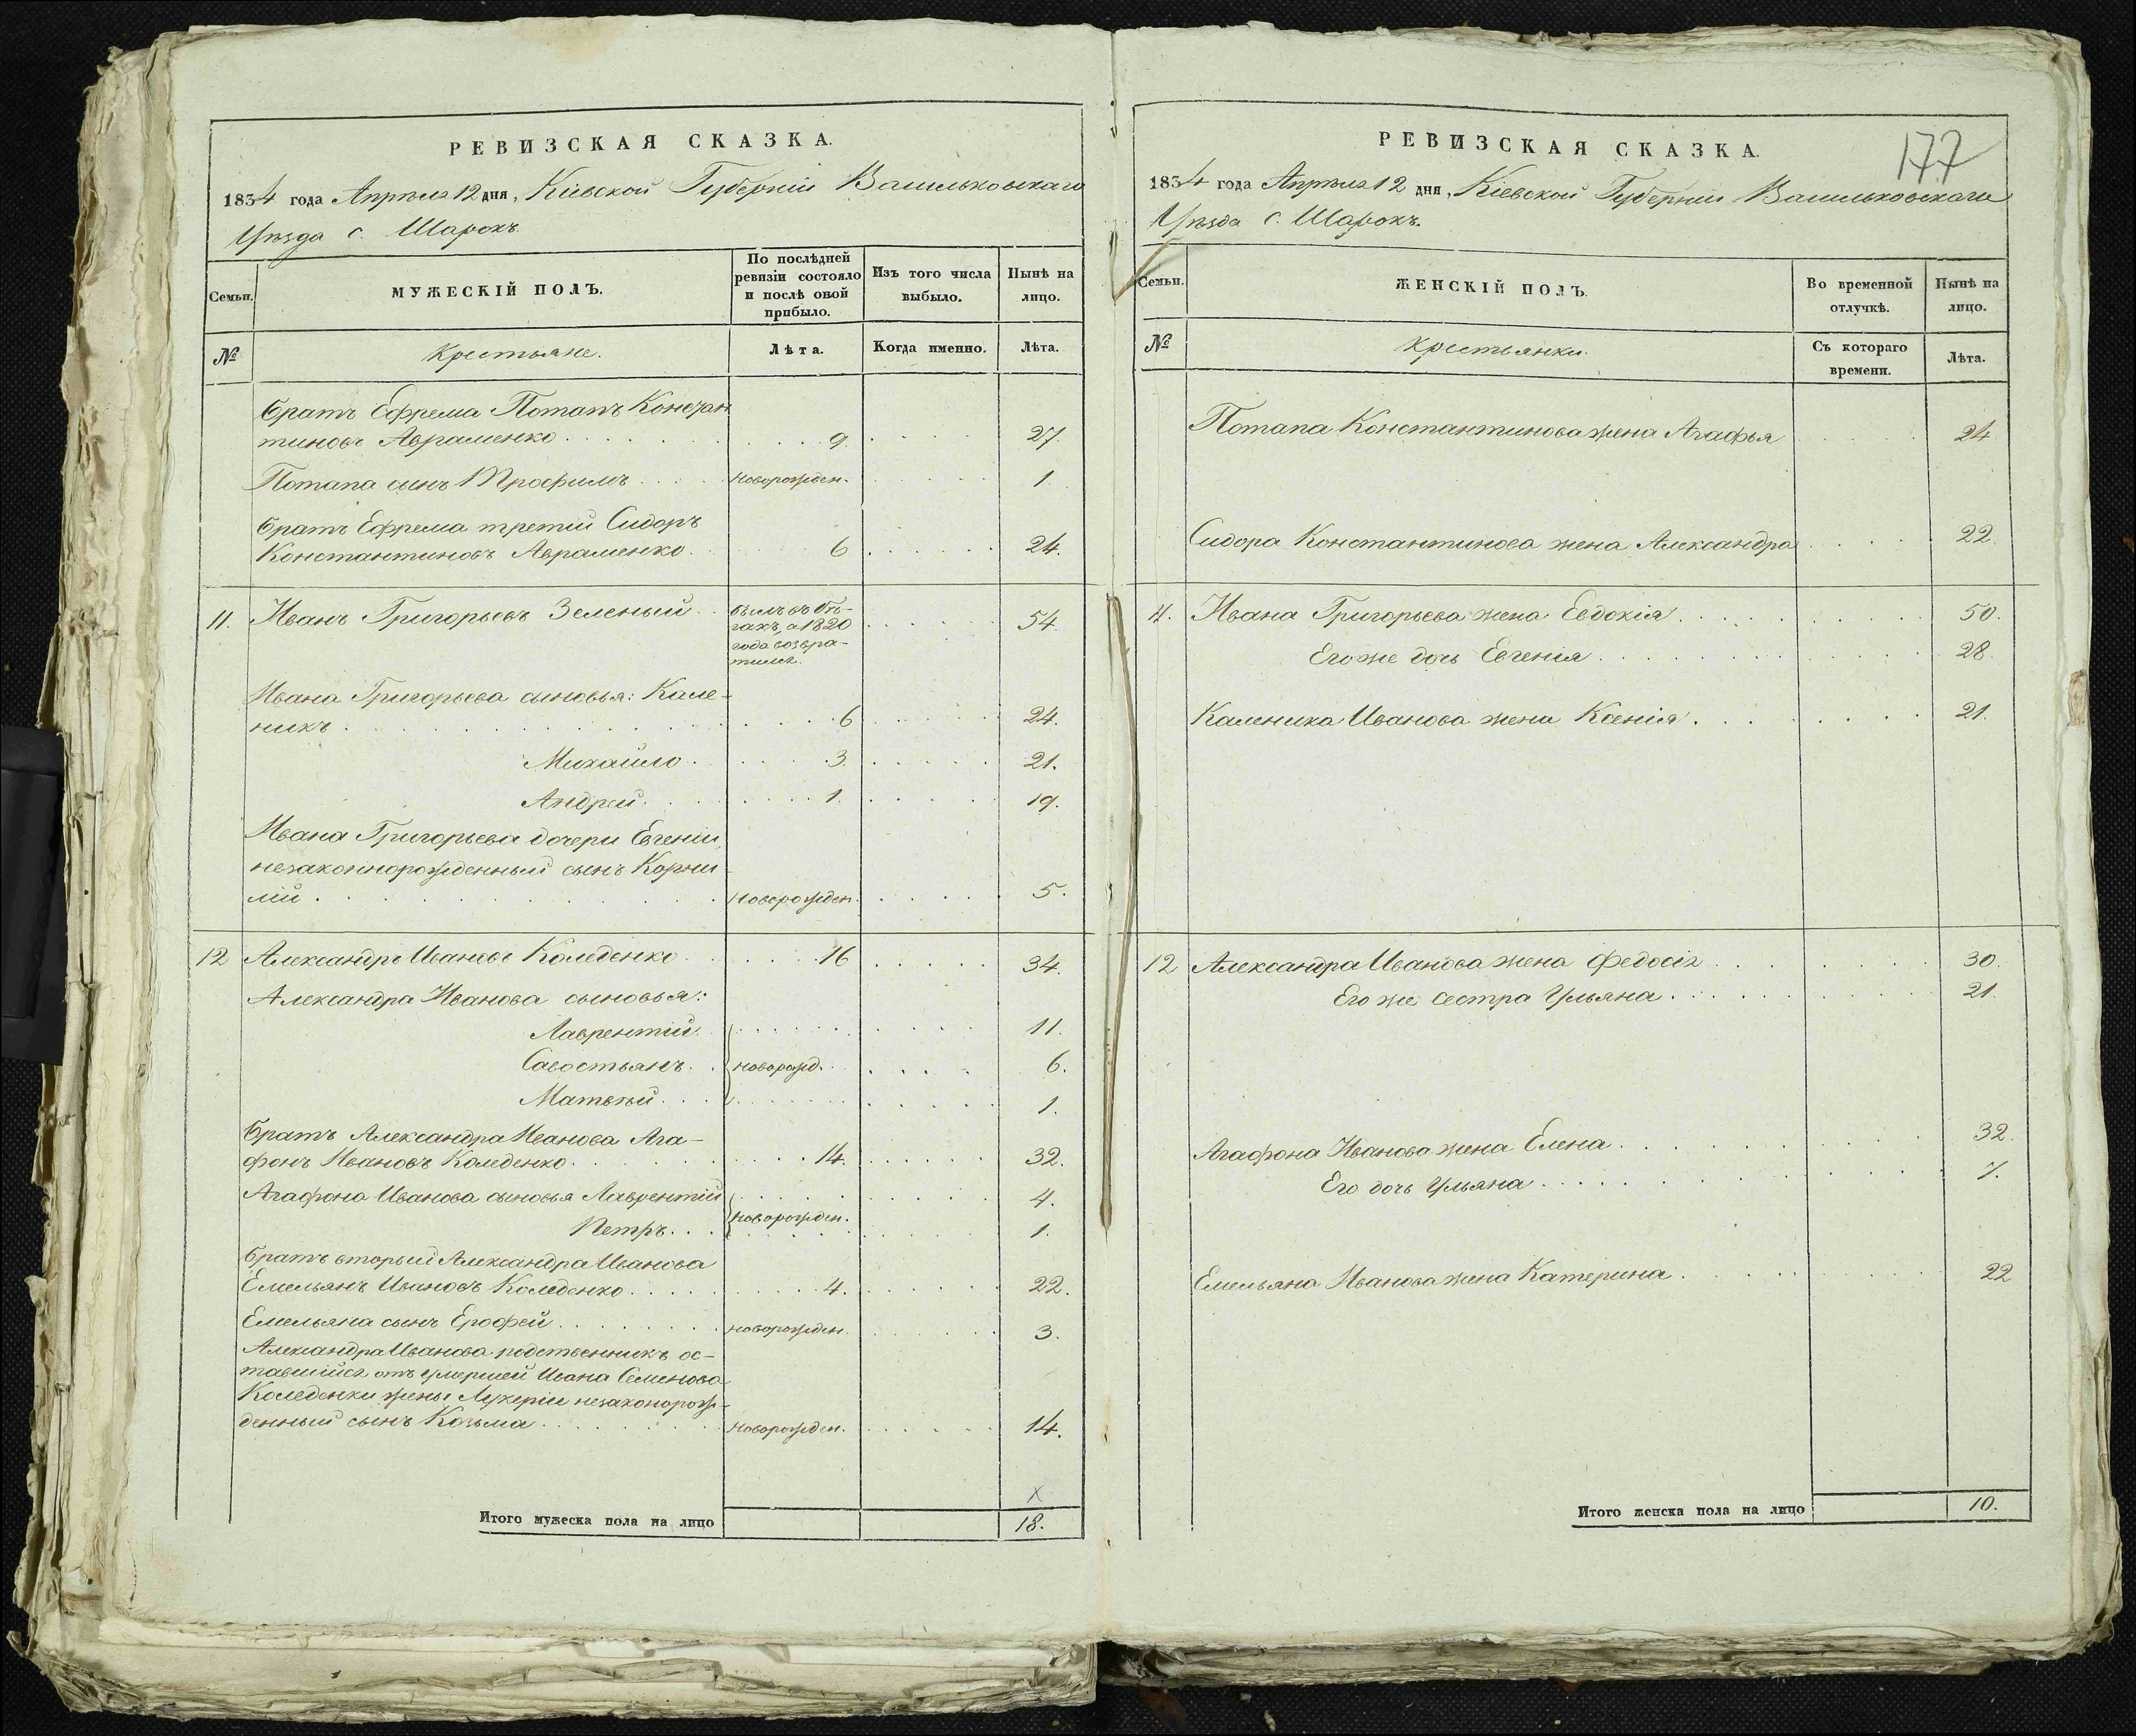 РЕВИЗСКАЯ СКАЗКА.
1834 года Апрѣля 12 дня, Кіевской Губерніи Васильковскаго
Уѣзда с. Шарокъ.
Семьи.
МУЖЕСКІЙ ПОЛЪ.
По послѣдней ревизіи состояло и послѣ оной прибыло.
Изъ того числа выбыло.
Нынѣ на лицо.
№
Крестьяне.
Лѣта.
Когда именно.
Лѣта.
Братъ Ефрема Потапъ Констан
тиновъ Авраменко 9. 27.
Потапа сынъ Трофимъ новорожден. 1.
Братъ Ефрема третій Сидоръ
Константиновъ Авраменко 6 24.
11. Иванъ Григорьевъ Зеленый былъ въ бѣ- 54.
гахъ, а 1820
года возвра-
тился.
Ивана Григорьева сыновья: Кале-
никъ 6 24.
Михайло 3. 21.
Андрей 1. 19.
Ивана Григорьева дочери Евгеніи
незаконнорожденный сынъ Корни
лій новорожден. 5.
12 Александръ Ивановъ Коледенко 16 34.
Александра Иванова сыновья:
Лаврентій 11.
Савостьянъ новорожд. 6.
Матвѣй 1.
Братъ Александра Иванова Ага-
фонъ Ивановъ Коледенко 14. 32.
Агафона Иванова сыновья Лаврентій 4.
новорожден.
Петръ 1.
Братъ вторый Александра Иванова
Емельянъ Ивановъ Коледенко 4. 22.
Емельяна сынъ Ерофей новорожден. 3.
Александра Иванова родственникъ ос-
тавшійся отъ умершей Ивана Семенова
Коледенки жены Лукеріи незаконорож-
денный сынъ Козьма новорожден. 14.
х
Итого мужеска пола на лицо 18.
РЕВИЗСКАЯ СКАЗКА.
177
1834 года Апрѣля 12 дня, Кіевской Губерніи Васильковскаго
Уѣзда с. Шарокъ.
Семьи.
ЖЕНСКІЙ ПОЛЪ.
Во временной отлучкѣ.
Нынѣ на лицо.
№
Крестьянки.
Съ котораго времени.
Лѣта.
Потапа Константинова жена Агафья 24
Сидора Константинова жена Александра 22.
11. Ивана Григорьева жена Евдокія 50.
Его же дочь Евгенія 28.
Каленика Иванова жена Ксенія 21.
12 Александра Иванова жена Федосія 30.
Его же сестра Ульяна 21.
Агафона Иванова жена Елена 32.
Его дочь Ульяна 7.
Емельяна Иванова жена Катерина 22
Итого женска пола на лицо 10.